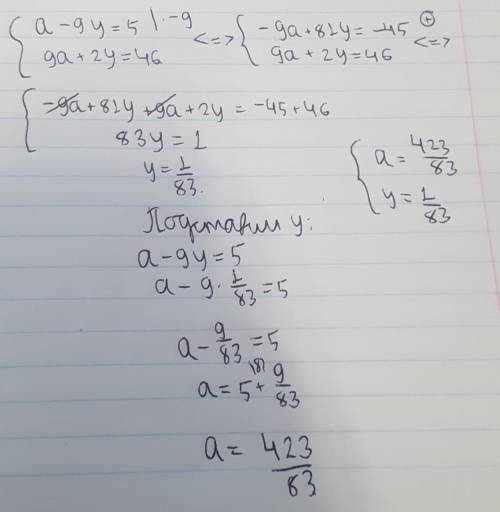 { a - 9y = 5 | · -9 <=> { -9a + 81y = -45 ⊕ <=>
9a + 2y = 46    9a + 2y = 46
{ -9a + 81y + 9a + 2y = -45 + 46
83y = 1
y = 1/83.
{ a = 423/83
y = 1/83
Подставим y:
a - 9y = 5
a - 9 · 1/83 = 5
a - 9/83 = 5
a = 5 + 9/83
a = 423/83